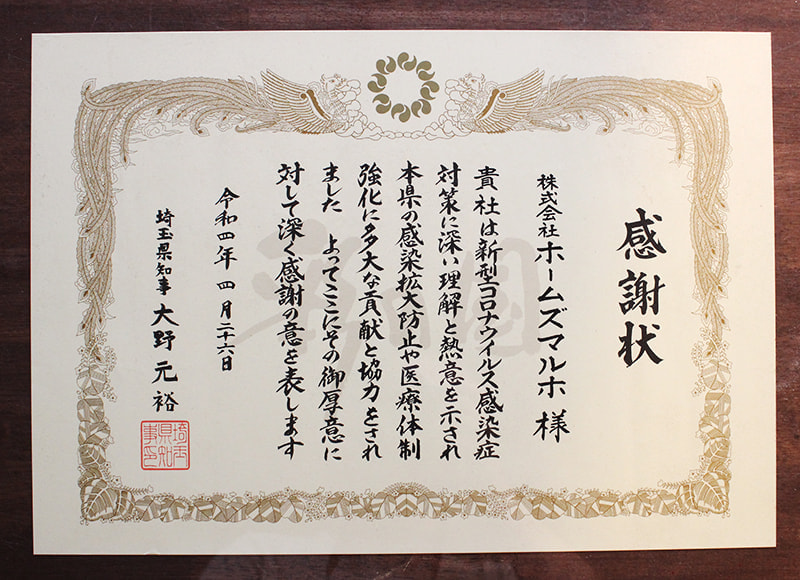 感謝状
株式会社 ホームズマルホ 様
貴社は新型コロナウイルス感染症
対策に深い理解と熱意を示され
本県の感染拡大防止や医療体制
強化に多大な貢献と協力をされ
ました よってここにその御厚意に
対して深く感謝の意を表します
令和四年 四月二十六日
埼玉県知事 大野元裕
埼玉
県知
事印